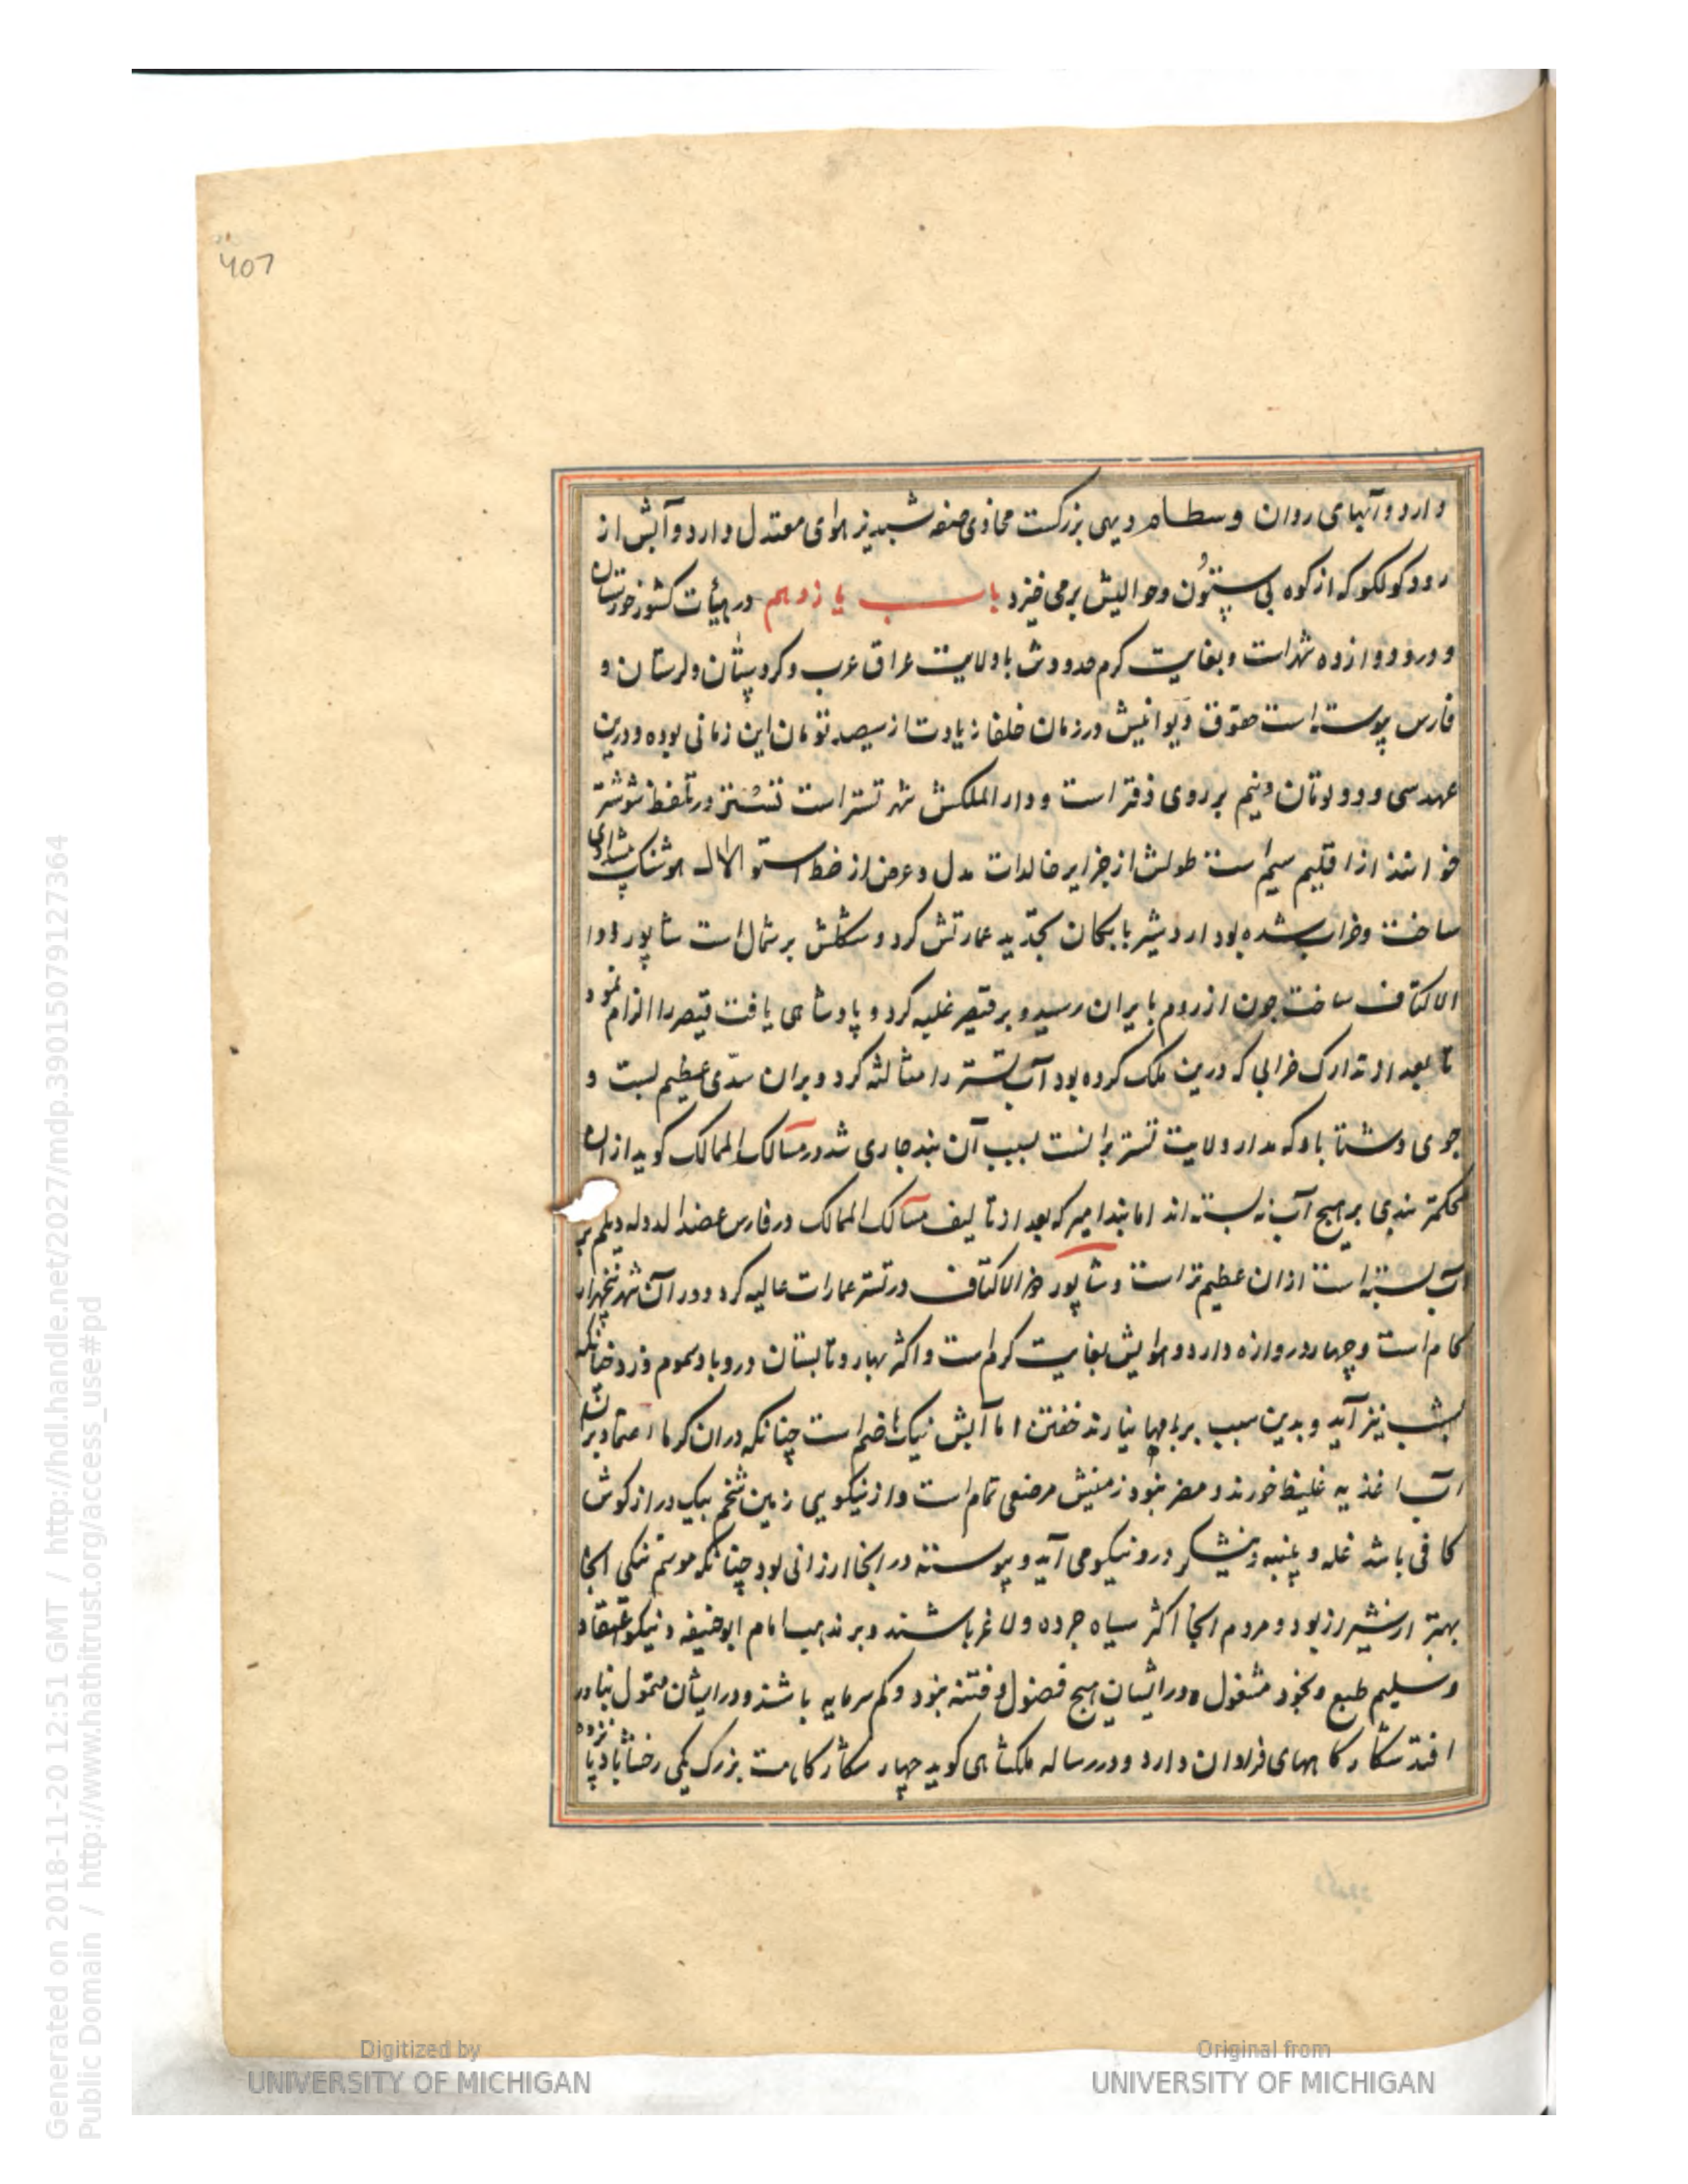 407
دارد و آبهای روان وسطام دیهی بزرکست محاذی صفه شبدیز هوای معتدل دارد و آبش از
رود کولکو که از کوه بی ستون و حوالیش برمی خیزد باب یازدهم در هیأت کشور خوزستان
و درو دوازده شهر است و بغایت کرم حدودش با ولایت عراق عرب و کردستان و لرستان و
فارس پیوسته است حقوق دیوانیش در زمان خلفا زیادت از سیصد تومان این زمانی بوده و درین
عهد سی و دو تومان و نیم بر روی دفتر است و دار الملکش شهر تستر است تستر در تلفظ شوشتر
خوانند از اقلیم سیم است طولش از جزایر خالدات و عرض از خط استوا هوشنک پیشدادی
ساخت و خراب شده بود اردشیر بابکان تجدید عمارتش کرد و شکلش بر مثال است شاپور ذوا
الاکتاف ساخت چون از روم بایران رسید و بر قیصر غلبه کرد و پادشاهی یافت قیصر را الزام نمود
تا بعد از تدارک خرابی که درین ملک کرده بود آب تستر را مثالثه کرد و بران سدی عظیم بست و
جوی دشتاباد که مدار ولایت تستر برانست بسبب آن بند جاری شد در مسالک الممالک کوید ازان
محکمتر بندی بر هیچ آب نبسته اند اما بند امیر که بعد از تالیف مسالک الممالک در فارس عضد الدوله دیلم بر
آب بسته است ازان عظیم تر است و شاپور ذو الاکتاف در تستر عمارات عالیه کرد و دور آن شهر پنجهزار
کام است و چهار دروازه دارد و هوایش بغایت کرم است و اکثر بهار و تابستان درو باد سموم وزد چنانکه
بشب نیز آید و بدین سبب بر بامها نیارند خفتن اما آبش نیک هاضم است چنانکه دران کرما اعتماد بر
آب اغذیه غلیظ خورند و مضر نبود زمینش مرتفعی تمام است و از نیکویی زمین شخم بیک دراز کوش
کافی باشد غله و پنبه و نیشکر درو نیکو می آید و پیوسته در آنجا ارزانی بود چنانکه موسم تنکی آنجا
بهتر از شیراز بود و مردم آنجا اکثر سیاه چرده و لاغر باشند و بر مذهب امام ابوحنیفه و نیکو اعتقاد
و سلیم طبع و بخود مشغول و در ایشان هیچ فضول و فتنه نبود و کم سرمایه باشند و در ایشان متمول نادر
افتد شکارکاههای فراوان دارد و در رساله ملکشاهی کوید چهار شکارکاهست بزرک یکی رخشاباد پانزده
Generated on 2018-11-20 12:51 GMT / http://hdl.handle.net/2027/mdp.39015079127364
Public Domain / http://www.hathitrust.org/access_use#pd
Digitized by
UNIVERSITY OF MICHIGAN
Original from
UNIVERSITY OF MICHIGAN